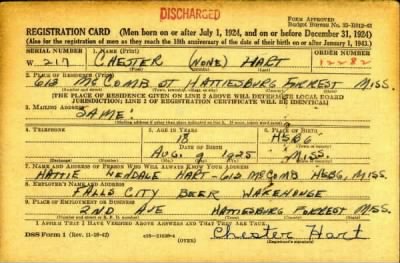 DISCHARGED
FORM APPROVED
Budget Bureau No. 33-R012-43
REGISTRATION CARD (Men born on or after July 1, 1924, and on or before December 31, 1924)
(Also for the registration of men as they reach the 18th anniversary of the date of their birth on or after January 1, 1943.)
SERIAL NUMBER 1. NAME (Print) ORDER NUMBER
W 217 CHESTER (NONE) HART 12282
2. PLACE OF RESIDENCE (Print)
612 McCOMB HATTIESBURG FORREST MISS.
[THE PLACE OF RESIDENCE GIVEN ON LINE 2 ABOVE WILL DETERMINE LOCAL BOARD
JURISDICTION; LINE 2 OF REGISTRATION CERTIFICATE WILL BE IDENTICAL]
3. MAILING ADDRESS
SAME.
4. TELEPHONE 5. AGE IN YEARS 6. PLACE OF BIRTH
18 HSBG
DATE OF BIRTH
AUG. 1925 MISS.
7. NAME AND ADDRESS OF PERSON WHO WILL ALWAYS KNOW YOUR ADDRESS
HATTIE HART-612 McCOMB HSBG, MISS.
8. EMPLOYER'S NAME AND ADDRESS
FALLS CITY BEER
9. PLACE OF EMPLOYMENT OR BUSINESS
2ND AVE HATTIESBURG FORREST MISS.
I AFFIRM THAT I HAVE VERIFIED ABOVE ANSWERS AND THAT THEY ARE TRUE.
DSS Form 1 (Rev. 11-16-42) (OVER) Chester Hart
(Registrant's signature)